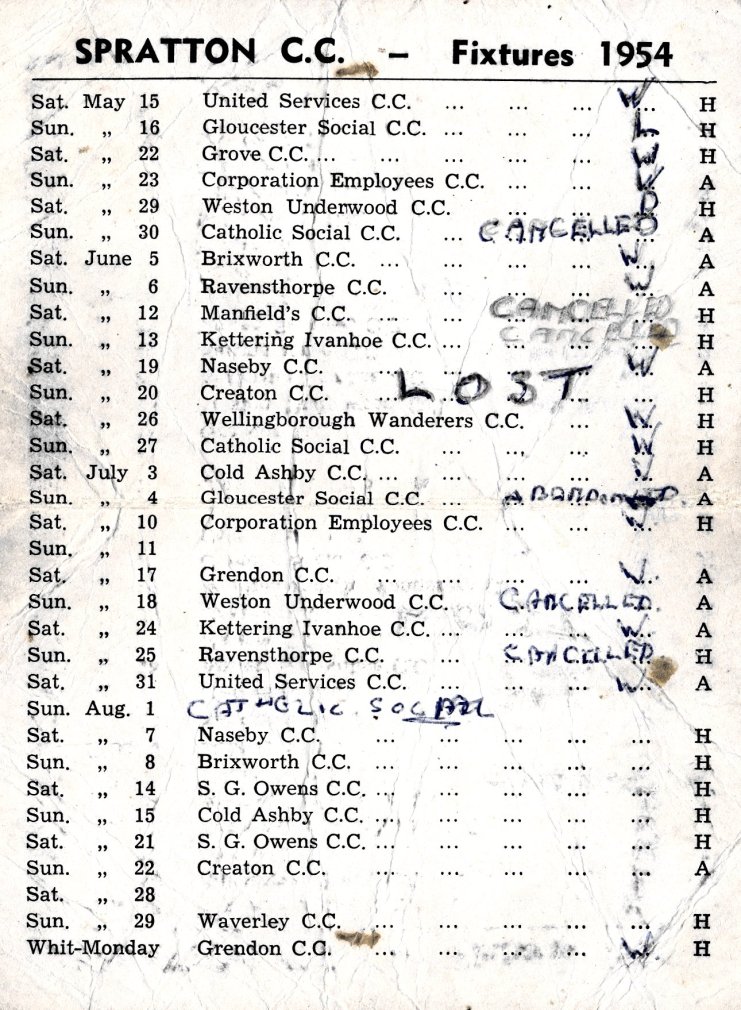 SPRATTON C.C. – Fixtures 1954
Sat. May 15 United Services C.C. ... ... ... W... H
Sun. „ 16 Gloucester Social C.C. ... ... ... L H
Sat. „ 22 Grove C.C. ... ... ... ... W H
Sun. „ 23 Corporation Employees C.C. ... ... W A
Sat. „ 29 Weston Underwood C.C. ... ... D H
Sun. „ 30 Catholic Social C.C. ... CANCELLED A
Sat. June 5 Brixworth C.C. ... ... ... ... W A
Sun. „ 6 Ravensthorpe C.C. ... ... ... W A
Sat. „ 12 Manfield's C.C. ... ... CANCELLED H
Sun. „ 13 Kettering Ivanhoe C.C. ... CANCELLED H
Sat. „ 19 Naseby C.C. ... ... ... ... W A
Sun. „ 20 Creaton C.C. ... LOST ... H
Sat. „ 26 Wellingborough Wanderers C.C. ... W H
Sun. „ 27 Catholic Social C.C. ... ... ... W H
Sat. July 3 Cold Ashby C.C. ... ... ... ... A
Sun. „ 4 Gloucester Social C.C. ... ABANDONED. A
Sat. „ 10 Corporation Employees C.C. ... ... W.. H
Sun. „ 11
Sat. „ 17 Grendon C.C. ... ... ... ... W.. A
Sun. „ 18 Weston Underwood C.C. CANCELLED. A
Sat. „ 24 Kettering Ivanhoe C.C. ... ... ... W.. A
Sun. „ 25 Ravensthorpe C.C. ... CANCELLED H
Sat. „ 31 United Services C.C. ... ... ... W.. A
Sun. Aug. 1 CATHOLIC SOCIAL
Sat. „ 7 Naseby C.C. ... ... ... ... ... H
Sun. „ 8 Brixworth C.C. ... ... ... ... ... H
Sat. „ 14 S. G. Owens C.C. ... ... ... ... ... H
Sun. „ 15 Cold Ashby C.C. ... ... ... ... ... H
Sat. „ 21 S. G. Owens C.C. ... ... ... ... ... H
Sun. „ 22 Creaton C.C. ... ... ... ... ... A
Sat. „ 28
Sun. „ 29 Waverley C.C. ... ... ... ... ... H
Whit-Monday Grendon C.C. ... ... ... ... W.. H